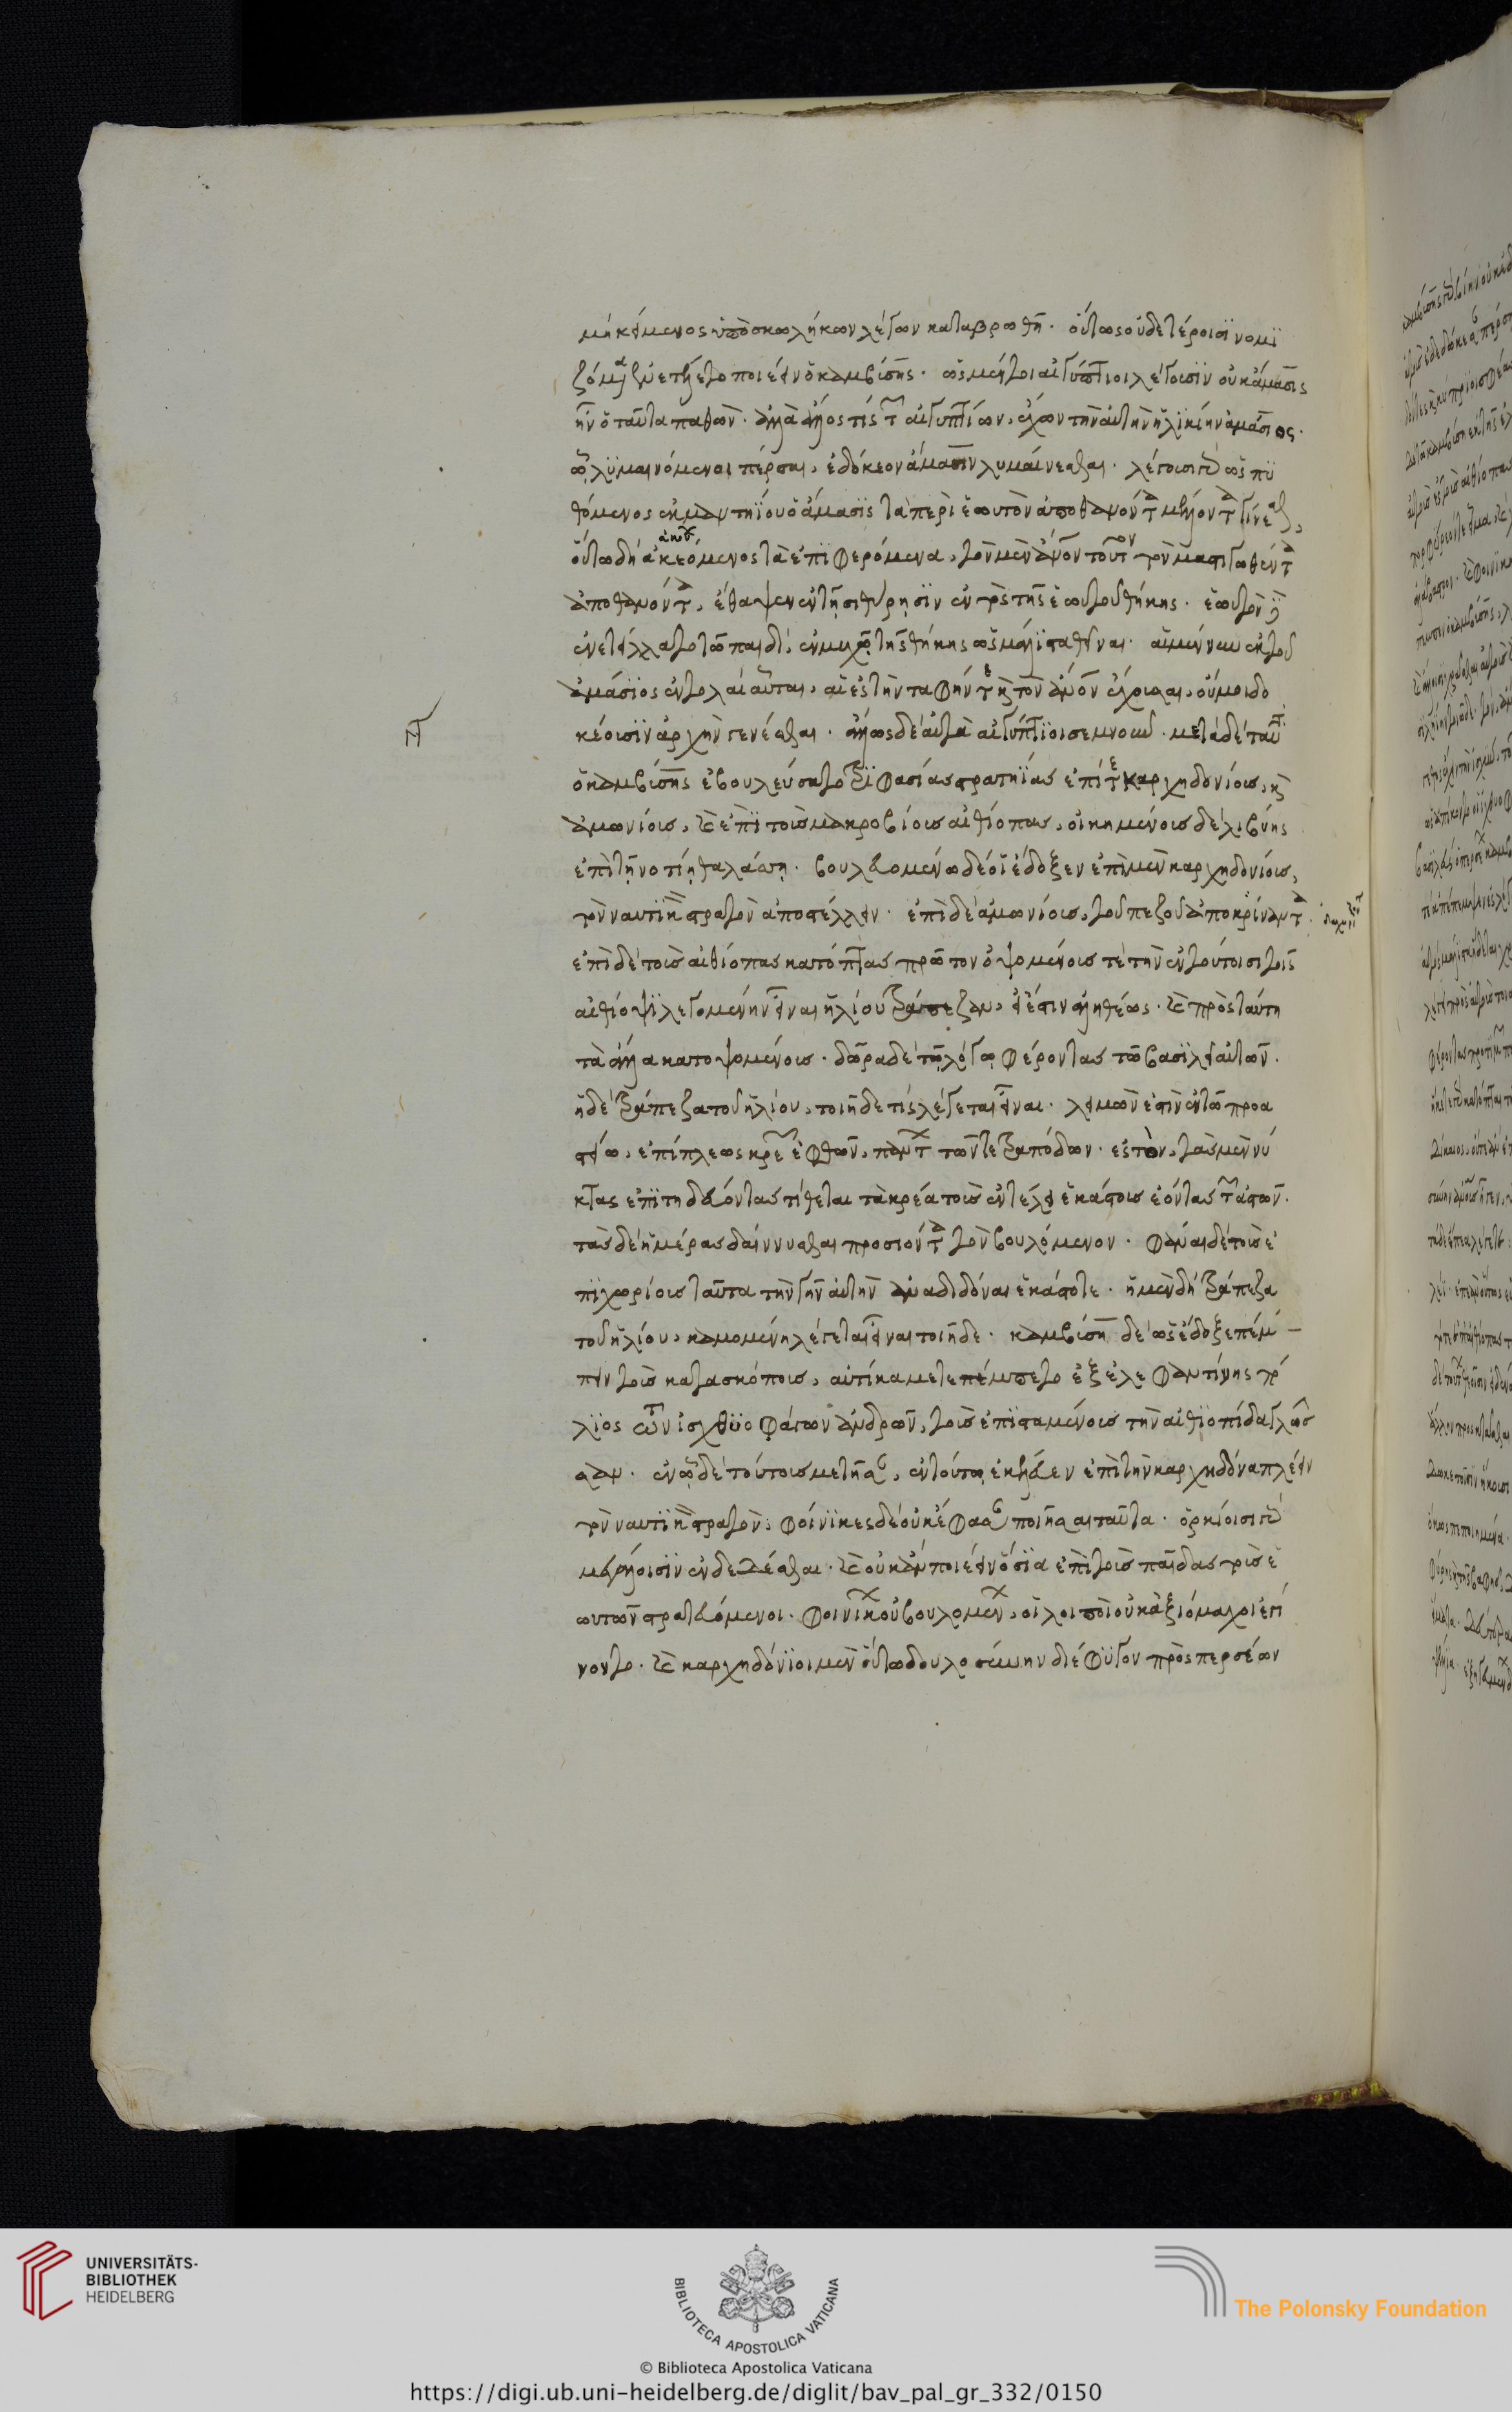 μὴ κείμενος ὑπὸ σκωλήκων λέγων καταβρωθῆ. οὕτως οὐδετέροισϊ νομϊ
ζόμενα ἐνετέλλετο ποιέειν ὁ καμβύσης. ὡς μέντοι αἰγύπτιοι λέγουσϊν οὐκ ἄμασις
ἦν ὁ ταῦτα παθών. ἀλλὰ ἄλλος τίς τῶν αἰγυπτίων, ἔχων τὴν αὐτὴν ἡλικίην ἀμάσιος.
ᾧ λϋμαινόμενοι πέρσαι, ἐδόκεον ἄμασιν λυμαίνεσθαι. λέγουσι γὰρ ὡς πϋ
θόμενος ἐκ μαντηΐου ὁ ἄμασϊς τὰ περὶ ἑωυτὸν ἀποθανόντα μέλλοντα γίνεσθαι,
οὕτω δὴ ἀκεόμενος τὰ ἐπϊφερόμενα, τὸν μὲν ἄνθρωπον τοῦτον τὸν μαστιγωθέντα
ἀποθανόντα, ἔθαψεν ἐν τῆσι θύρησϊν ἐντὸς τῆς ἑωυτοῦ θήκης. ἑωυτὸν δὲ
ἐνετείλλατο τῶ παιδὶ, ἐν μυχῶ τῆς θήκης ὡς μάλϊστα θεῖναι. αἱ μέν νυν ἐκ τοῦ
ἀμάσϊος ἐντολαὶ αὗται, αἱ ἐς τὴν ταφήν τε καὶ τὸν ἄνθρωπον ἔχουσαι, οὔ μοι δο
κέουσϊν ἀρχὴν γενέσθαι. ἄλλως δὲ αὐτὰ αἰγύπτϊοι σεμνοῦν. μετὰ δὲ ταῦτα
ὁ καμβύσης ἐβουλεύσατο τρϊφασίας στρατηΐας ἐπί τε καρχηδονίους, καὶ
ἀμωνίους, καὶ ἐπὶ τοὺς μακροβίους αἰθίοπας, οἰκημένους δὲ λιβύης
ἐπὶ τῆ νοτίη θαλάσση. βουλευομένω δέ οἱ ἔδοξεν ἐπὶ μὲν καρχηδονίους,
τὸν ναυτϊκὸν στρατὸν ἀποστέλλειν. ἐπὶ δὲ ἀμωνίους, τοῦ πεζοῦ ἀποκρίναντα.
ἐπὶ δὲ τοὺς αἰθίοπας κατόπτας πρῶτον ὀψομένους τὲ τὴν ἐν τούτοισι τοῖς
αἰθίοψϊ λεγομένην εἶναι ἡλίου τράπεζαν, εἰ ἔστιν ἀληθέως. καὶ πρὸς ταύτη
τὰ ἄλλα κατοψομένους. δῶρα δὲ τῶ λόγω φέροντας τῶ βασϊλεῖ αὐτῶν.
ἡ δὲ τράπεζα τοῦ ἡλίου, τοιῆδε τὶς λέγεται εἶναι. λειμὼν ἐστὶν ἐν τῶ προα
στείω, ἐπίπλεως κρεῶν ἑφθῶν, πάντων τῶν τετραπόδων. ἐς τὸν, τὰς μὲν νύ
κτας ἐπϊτηδεύοντας τίθεται τὰ κρέα τοὺς ἐν τέλει ἑκάστους ἐόντας τῶν ἀστῶν.
τὰς δὲ ἡμέρας δαίνυσθαι προσιόντα τὸν βουλόμενον. φάναι δὲ τοὺς ἐ
πϊχωρίους ταῦτα τὴν γῆν αὐτὴν ἀναδιδόναι ἑκάστοτε. ἡ μὲν δὴ τράπεζα
τοῦ ἡλίου, καλεομένη λέγεται εἶναι τοιῆδε. καμβύση δὲ ὡς ἔδοξε πέμ
πειν τοὺς κατασκόπους, αὐτίκα μετεπέμπετο ἐξ ἐλεφαντίνης πό
λϊος τῶν ἰχθϋοφάγων ἀνδρῶν, τοὺς ἐπϊσταμένους τὴν αἰθϊοπίδα γλῶσ
σαν. ἐν ᾧ δὲ τούτους μετῆσαν, ἐν τούτω ἐκέλευεν ἐπὶ τὴν καρχηδόνα πλέειν
τὸν ναυτϊκὸν στρατὸν, φοίνϊκες δὲ οὐκ ἔφασαν ποιῆσαι ταῦτα. ὁρκίοισι γὰρ
μεγάλοισϊν ἐνδεδέσθαι. καὶ οὐκ ἂν ποιέειν ὅσϊα ἐπὶ τοὺς παῖδας τοὺς ἑ
ωυτῶν στρατευόμενοι. φοινίκων οὐ βουλομένων, οἱ λοιποὶ οὐκ ἀξιόμαχοι ἐγί
νοντο. καὶ καρχηδόνϊοι μὲν οὕτω δουλοσύνην διέφϋγον πρὸς περσέων
UNIVERSITÄTS-
BIBLIOTHEK
HEIDELBERG
BIBLIOTECA APOSTOLICA VATICANA
The Polonsky Foundation
© Biblioteca Apostolica Vaticana
https://digi.ub.uni-heidelberg.de/diglit/bav_pal_gr_332/0150